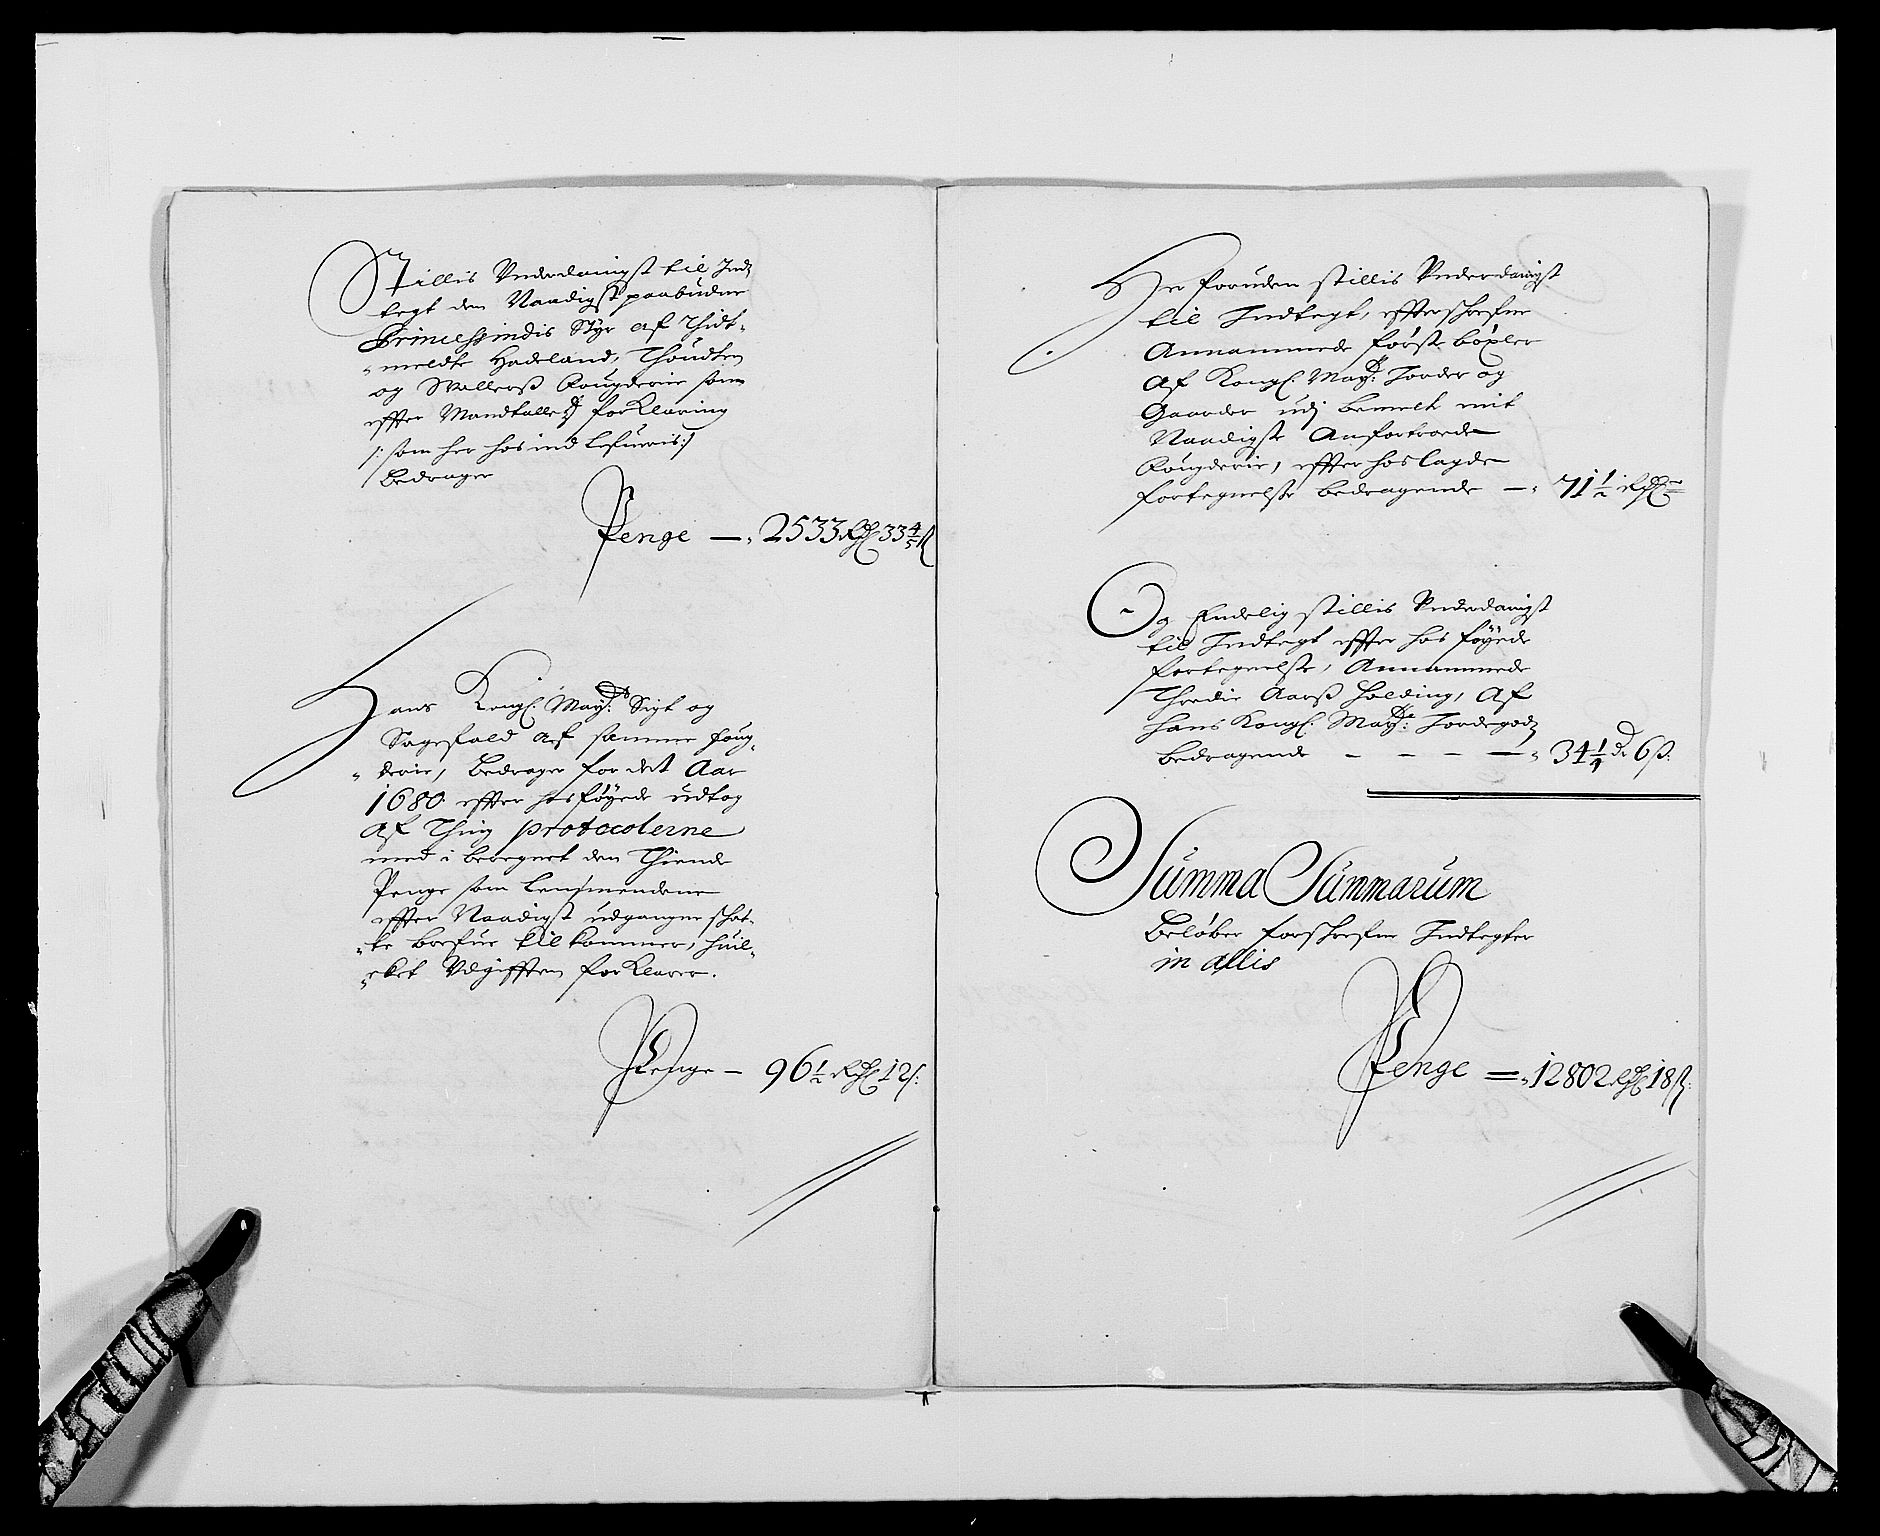 Stillis Underdanigst til Ind
tegt den Naadigst paabudne
Princessindis Styr af Thidt-
meldte Hadeland, Thoudten
og Wallerss Fougderie som
effter Mandtallerss forKlaring
/: som her hos ind lefueris :/
Bedrager
Penge — 2533 Rdl 33 4/5 ß
Hans Kongl. Mayts: Sigt og
Sagefald af samme foug-
derie, Bedrager for det Aar
1680. effter hosføyede udtog
af Thing protocolerne
med i beregnet den Thiende
Penge som Lensmendene
effter Naadigst udgangne schat-
te brefue tilkommer, huil-
cket Udgifften forKlarer.
Penge — 96 1/2 Rdl 12 ß:
Her foruden stillis Underdanigst
til Indtegt, effterschrefne
Annammede første böxler
af Kongl: Mayts: Jorder og
Gaarder udj bemelte mit
Naadigste Anfortroede
Fougderie, effter hos lagde
fortegnelse bedragende — 71 1/2 Rdlr
Og Endelig stillis Underdanigst
til Indtegt effter hos føyede
fortegnelse, Annammede
Thredie Aarss Holding, Af
hans Kongl: Mayts: Jordegodz
bedragende — — — — 34 1/4 dr 6 ß.
Summa Summarum
Beløber forschrefne Indtegter
in allis
Penge = 12802 Rdl 18 ß: